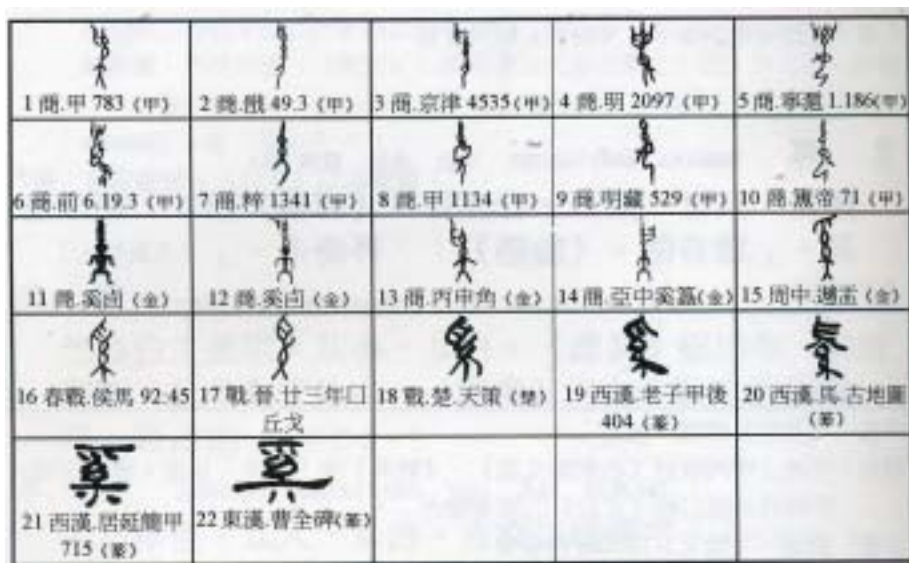 1 商.甲 783 (甲)
2 商.餓 49.3 (甲)
3 商.京津 4535 (甲)
4 商.明 2097 (甲)
5 商.寧滬 1.186(甲)
6 商.前 6.19.3 (甲)
7 商.粹 1341 (甲)
8 商.甲 1134 (甲)
9 商.明藏 529 (甲)
10 商.簠帝 71 (甲)
11 商.奚卣 (金)
12 商.奚卣 (金)
13 商.丙申角 (金)
14 商.亞中奚簋(金)
15 周中.趩盂 (金)
16 春戰.侯馬 92:45
17 戰.晉.廿三年囗
丘戈
18 戰.楚.天策 (楚)
19 西漢.老子甲後
404 (篆)
20 西漢.馬.古地圖
(篆)
奚
21 西漢.居延簡甲
715 (篆)
奚
22 東漢.曹全碑(篆)